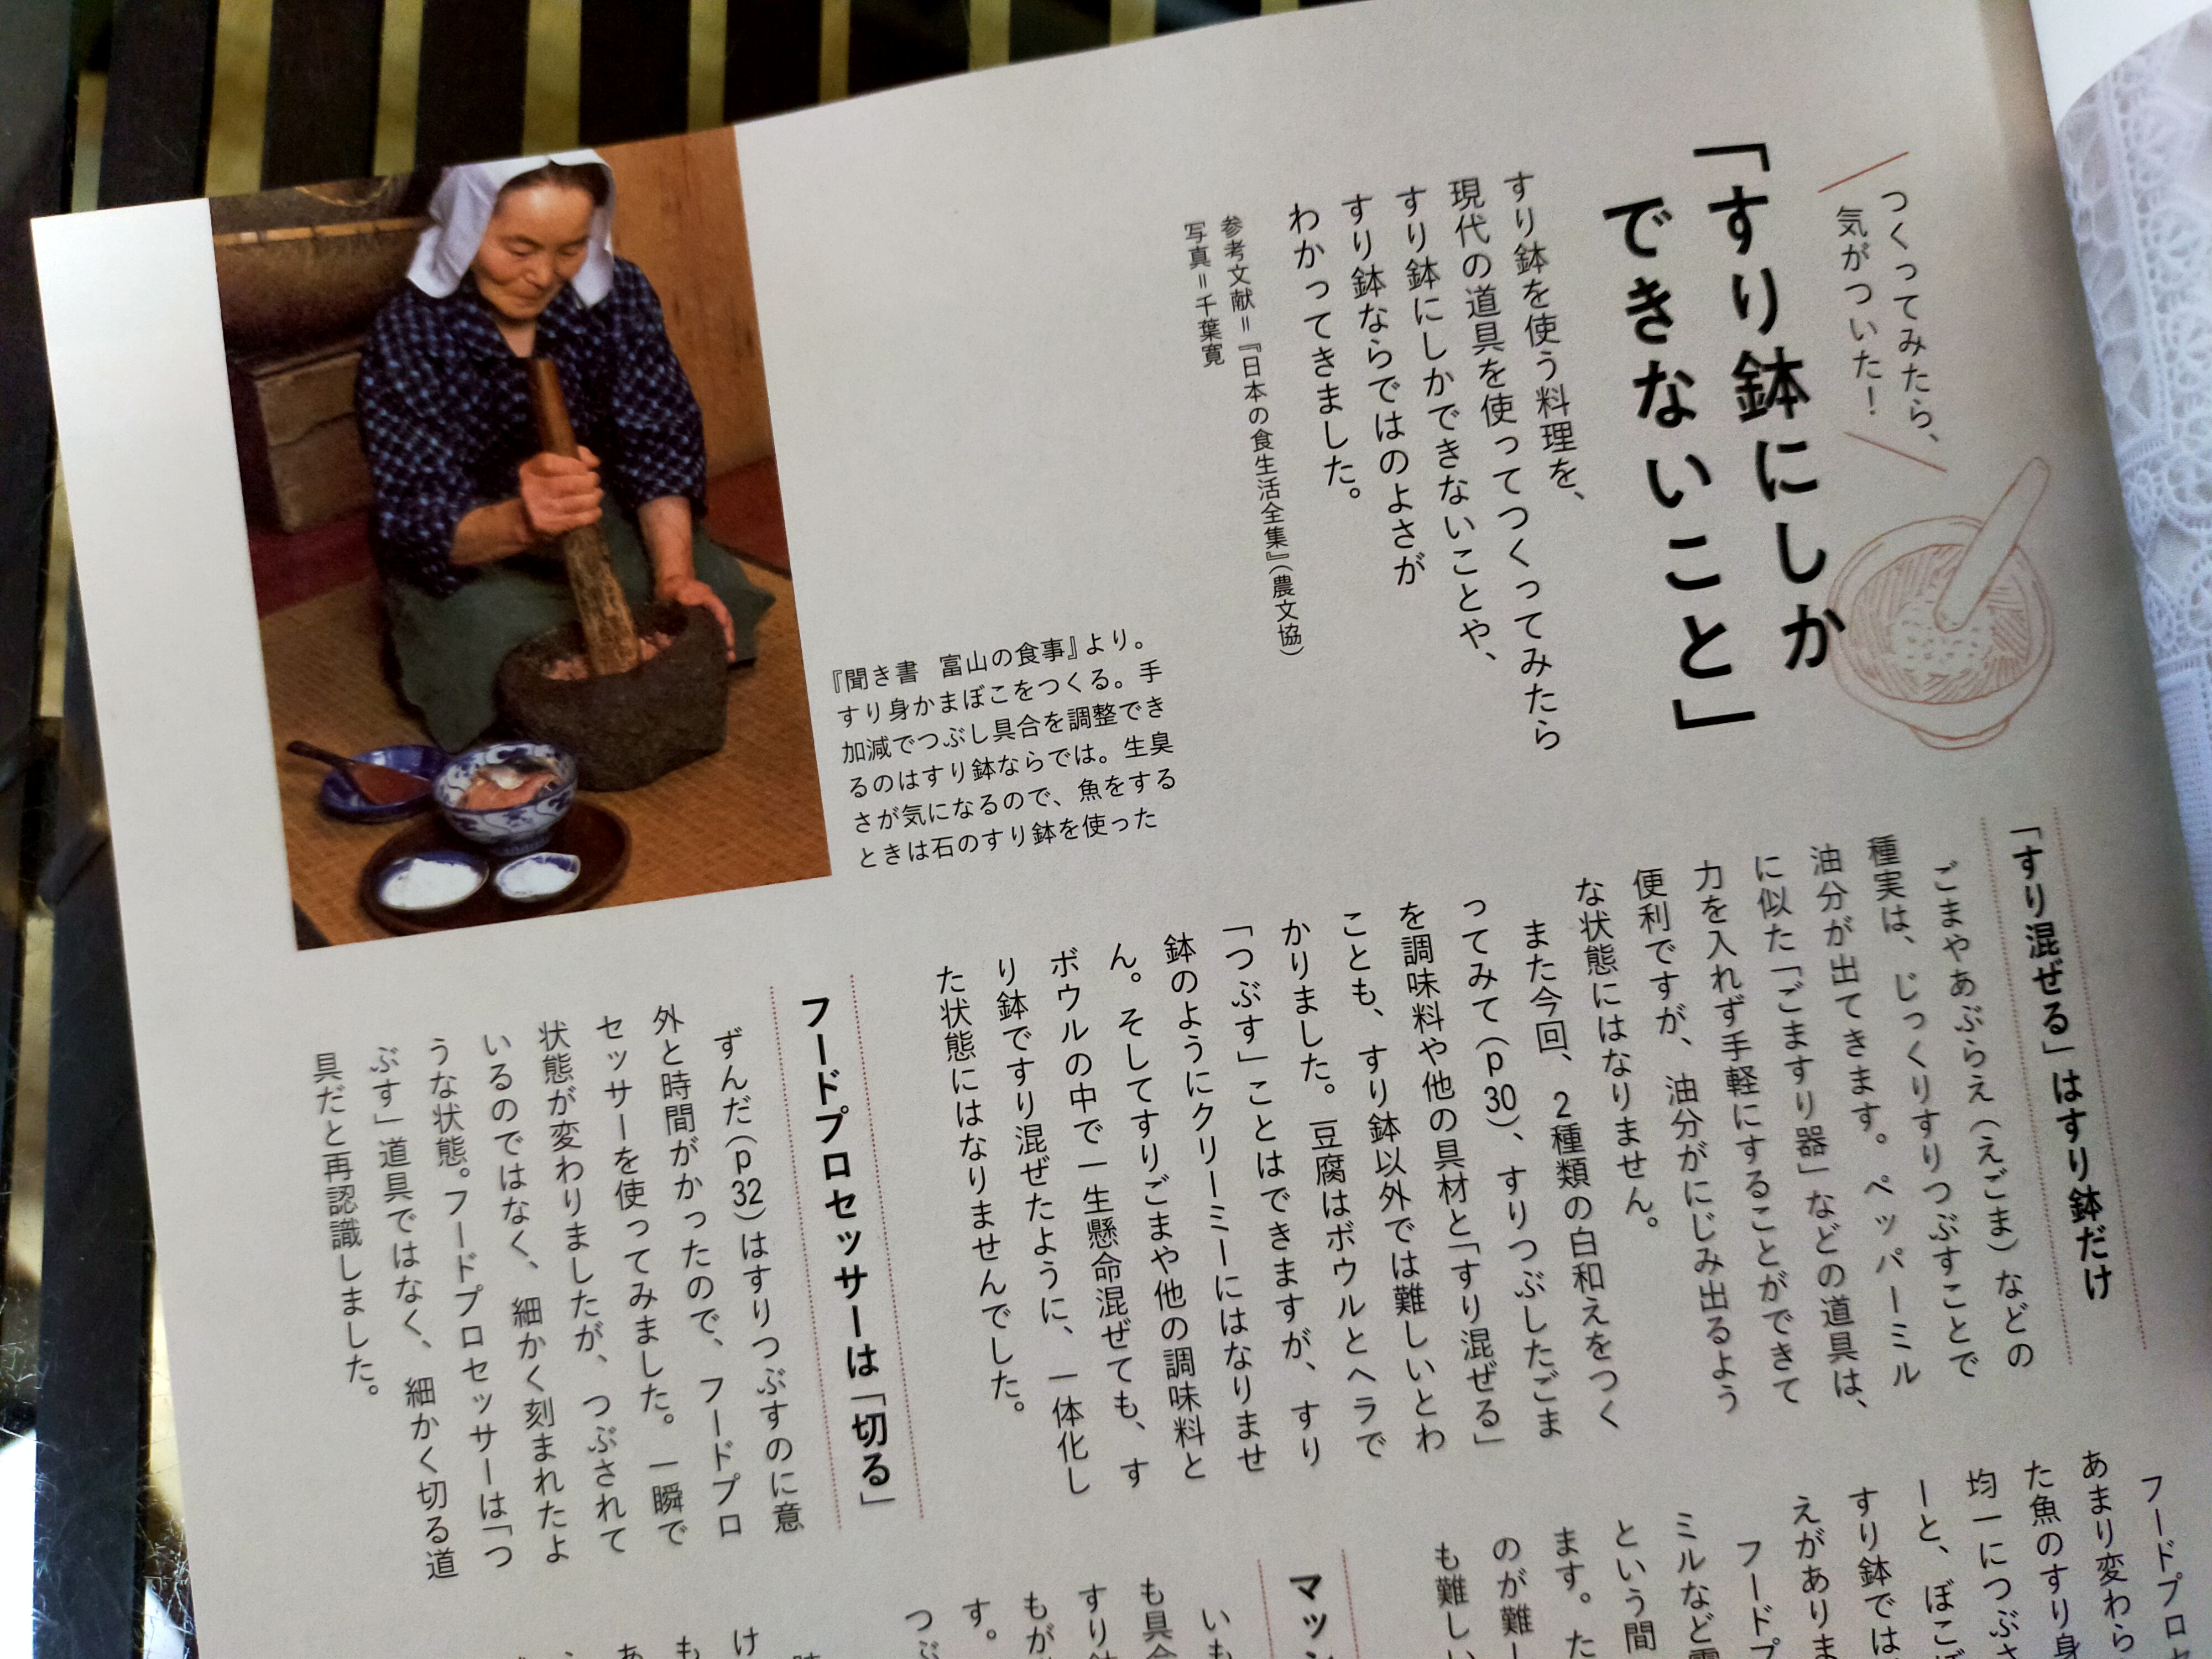 つくってみたら、
気がついた！
「すり鉢にしか
できないこと」
すり鉢を使う料理を、
現代の道具を使ってつくってみたら
すり鉢にしかできないことや、
すり鉢ならではのよさが
わかってきました。
参考文献＝『日本の食生活全集』（農文協）
写真＝千葉寛
『聞き書　富山の食事』より。
すり身かまぼこをつくる。手
加減でつぶし具合を調整でき
るのはすり鉢ならでは。生臭
さが気になるので、魚をする
ときは石のすり鉢を使った
「すり混ぜる」はすり鉢だけ
ごまやあぶらえ（えごま）などの
種実は、じっくりすりつぶすことで
油分が出てきます。ペッパーミル
に似た「ごますり器」などの道具は、
力を入れず手軽にすることができて
便利ですが、油分がにじみ出るよう
な状態にはなりません。
また今回、2種類の白和えをつく
ってみて（p30）、すりつぶしたごま
を調味料や他の具材と「すり混ぜる」
ことも、すり鉢以外では難しいとわ
かりました。豆腐はボウルとヘラで
「つぶす」ことはできますが、すり
鉢のようにクリーミーにはなりませ
ん。そしてすりごまや他の調味料と
ボウルの中で一生懸命混ぜても、す
り鉢ですり混ぜたように、一体化し
た状態にはなりませんでした。
フードプロセッサーは「切る」
ずんだ（p32）はすりつぶすのに意
外と時間がかったので、フードプロ
セッサーを使ってみました。一瞬で
状態が変わりましたが、つぶされて
いるのではなく、細かく刻まれたよ
うな状態。フードプロセッサーは「つ
ぶす」道具ではなく、細かく切る道
具だと再認識しました。
フードプロセ
あまり変わら
た魚のすり身
均一につぶさ
ーと、ぼこぼ
すり鉢では
えがありま
フードプ
ミルなど
という間
ます。た
のが難し
も難しい
マッシ
いも
も具合
すり鉢
もが
す。
つぶ